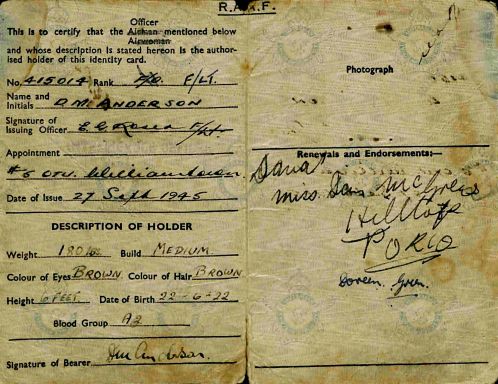 R.A.A.F.
Officer
This is to certify that the Airman mentioned below
Airwoman
and whose description is stated hereon is the author-
ised holder of this identity card.
No. 415014 Rank F/O. F/LT.
Name and
Initials D.M. ANDERSON
Signature of
Issuing Officer F/Lt.
Appointment
#5 OTU. Williamtown
Date of Issue 27 Sept 1945
DESCRIPTION OF HOLDER
Weight 180 lbs Build MEDIUM.
Colour of Eyes BROWN. Colour of Hair BROWN
Height 6 FEET. Date of Birth 22-6-22
Blood Group A2
Signature of Bearer DM Anderson.
Photograph
Renewals and Endorsements:—
Miss
Hilltop
Doreen Green.